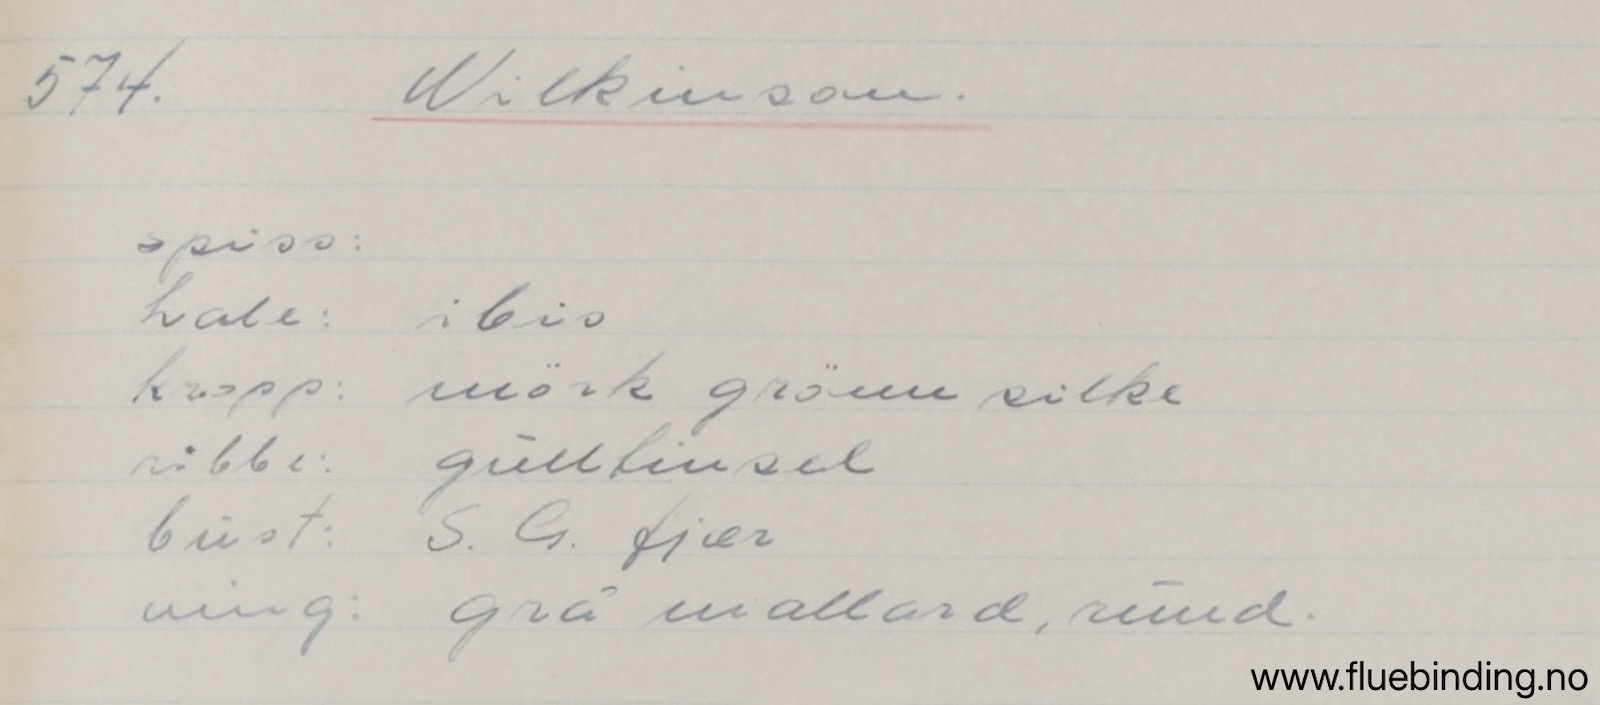 574. Wilkinson.
spiss:
hale: ibis
kropp: mörk grönn silke
ribbe: gulltinsel
bust: S. G. fjær
ving: grå mallard, rund.
www.fluebinding.no